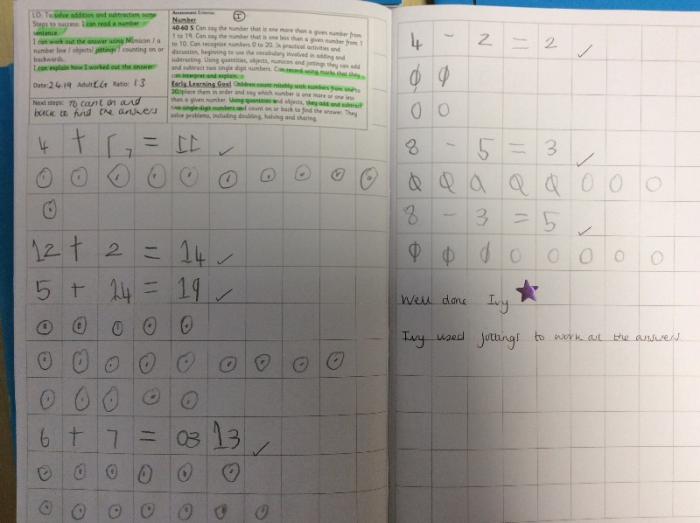 LO: To solve addition and subtraction sums
Steps to success: I can read a number
sentence.
I can work out the answer using Numicon / a
number line / objects / jottings / counting on or
backwards.
I can explain how I worked out the answer
Date: 24.19 Adult: Ratio: 1:3
Next steps: to cant on and
back to find the answers
Assessment Criteria:
Number
40-60 S Can say the number that is one more than a given number from
1 to 19. Can say the number that is one less than a given number from 1
to 10. Can recognise numbers 0 to 20. In practical activities and
discussion, beginning to use the vocabulary involved in adding and
subtracting. Using quantities, objects, numicon and jottings they can add
and subtract two single digit numbers. Can record using marks that they
can interpret and explain.
Early Learning Goal Children count reliably with numbers from one to
20, place them in order and say which number is one more or one less
than a given number. Using quantities and objects, they add and subtract
two single-digit numbers and count on or back to find the answer. They
solve problems, including doubling, halving and sharing.
4 + 7 = 11 ✓
12 + 2 = 14 ✓
5 + 14 = 19 ✓
6 + 7 = 03 13 ✓
4 - 2 = 2 ✓
8 - 5 = 3 ✓
8 - 3 = 5 ✓
Well done Ivy
Ivy used jottings to work out the answers